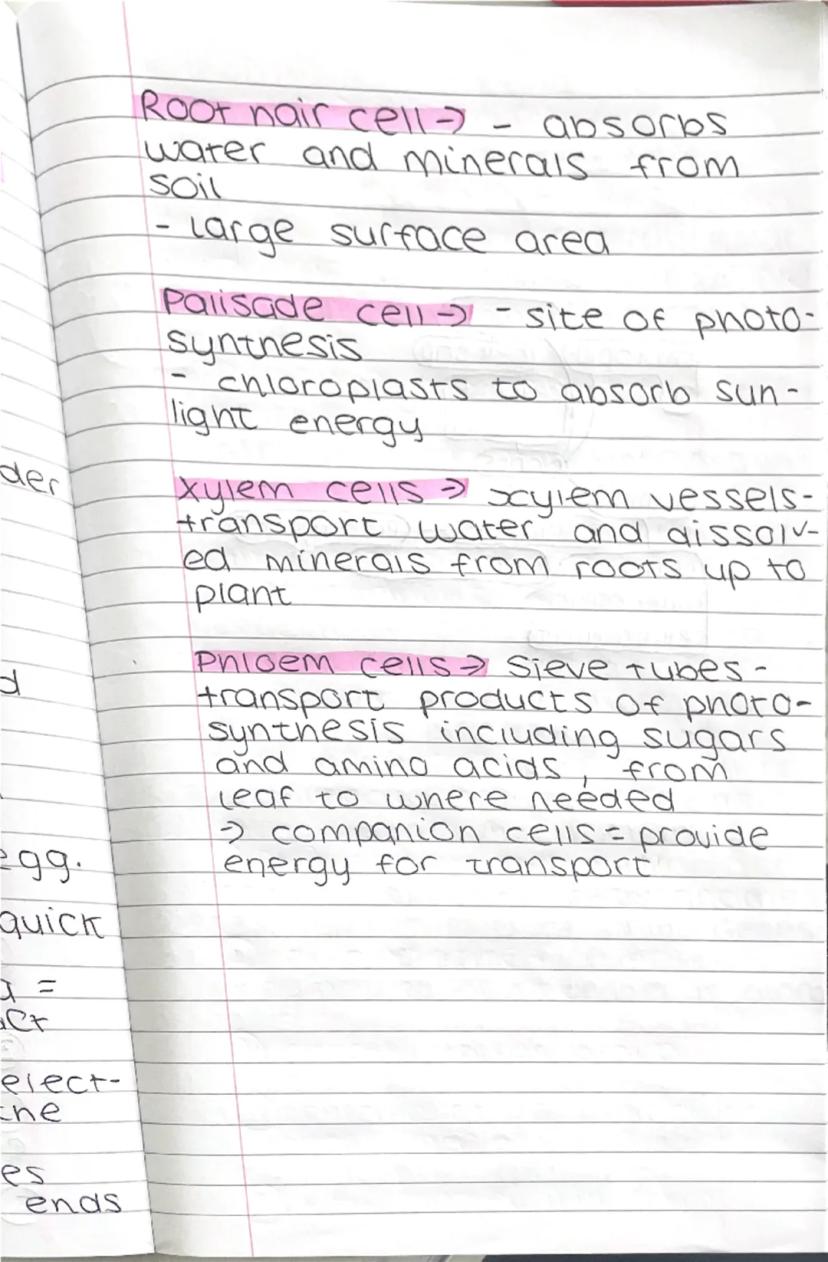 Root hair cell → - absorbs
water and minerals from
soil
- large surface area
Palisade cell → - site of photo-
synthesis
- chloroplasts to absorb sun-
light energy
Xylem cells → xylem vessels-
transport water and dissolv-
ed minerals from roots up to
plant
Phloem cells → sieve tubes -
transport products of photo-
synthesis including sugars
and amino acids, from
leaf to where needed
→ companion cells = provide
energy for transport
der
d
egg.
quick
=
elect-
es
ends